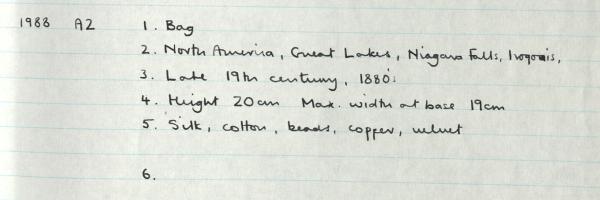 1988 A2 1. Bag
2. North America, Great Lakes, Niagara Falls, Iroquois,
3. Late 19th century, 1880s
4. Height 20cm Max. width at base 19cm
5. Silk, cotton, beads, copper, velvet
6.